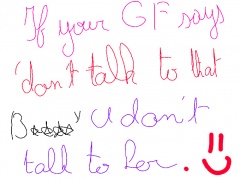 If your GF says
'don't talk to that
B y U don't
talk to her.